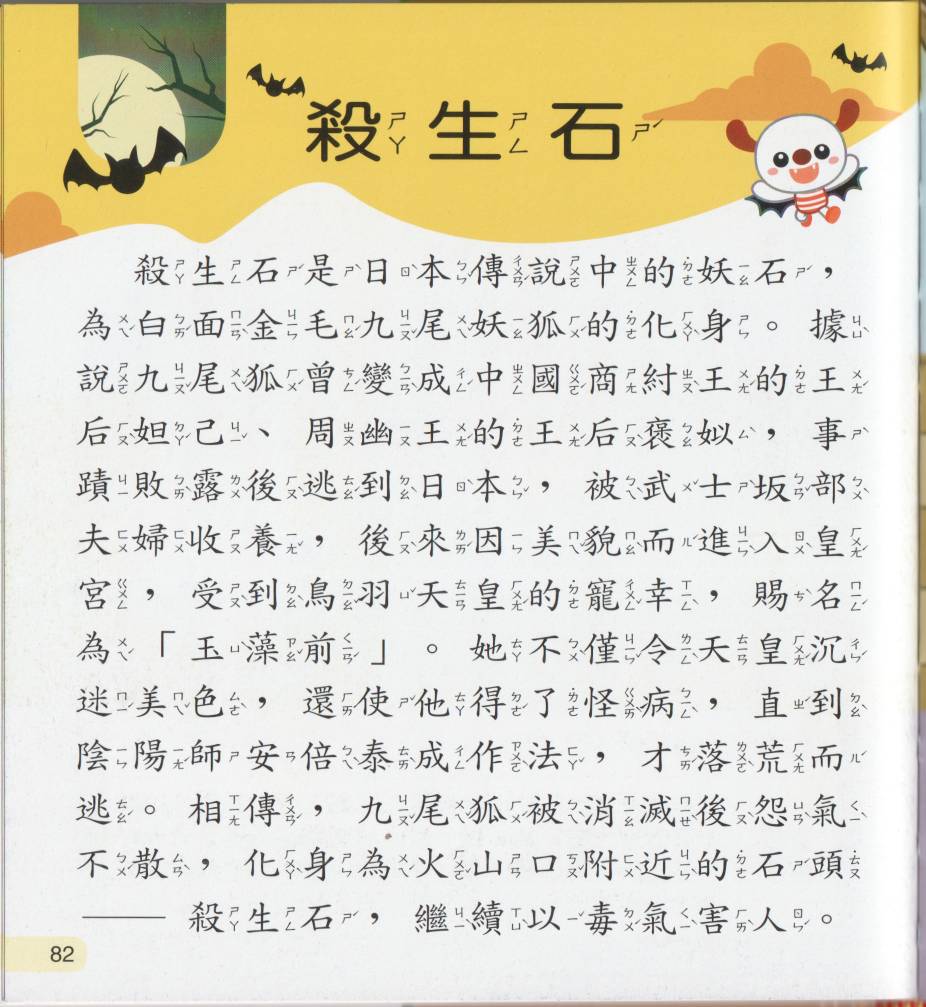 殺生石
殺生石是日本傳說中的妖石，
為白面金毛九尾妖狐的化身。據
說九尾狐曾變成中國商紂王的王
后妲己、周幽王的王后褒姒，事
蹟敗露後逃到日本，被武士坂部
夫婦收養，後來因美貌而進入皇
宮，受到鳥羽天皇的寵幸，賜名
為「玉藻前」。她不僅令天皇沉
迷美色，還使他得了怪病，直到
陰陽師安倍泰成作法，才落荒而
逃。相傳，九尾狐被消滅後怨氣
不散，化身為火山口附近的石頭
——殺生石，繼續以毒氣害人。
82